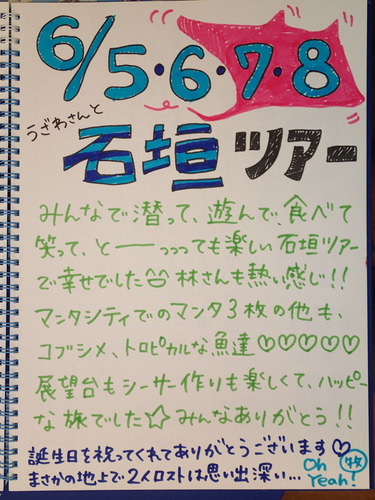 6/5・6・7・8
うざわさんと
石垣ツアー
みんなで潜って、遊んで、食べて
笑って、と──っっっても楽しい石垣ツアー
で幸せでした 林さんも熱い感じ!!
マンタシティでのマンタ3枚の他も、
コブシメ、トロピカルな魚達♡♡♡♡♡
展望台もシーサー作りも楽しくて、ハッピー
な旅でした☆みんなありがとう!!
誕生日を祝ってくれてありがとうございます♡
まさかの地上で2人ロストは思い出深い…
Oh
Yeah!